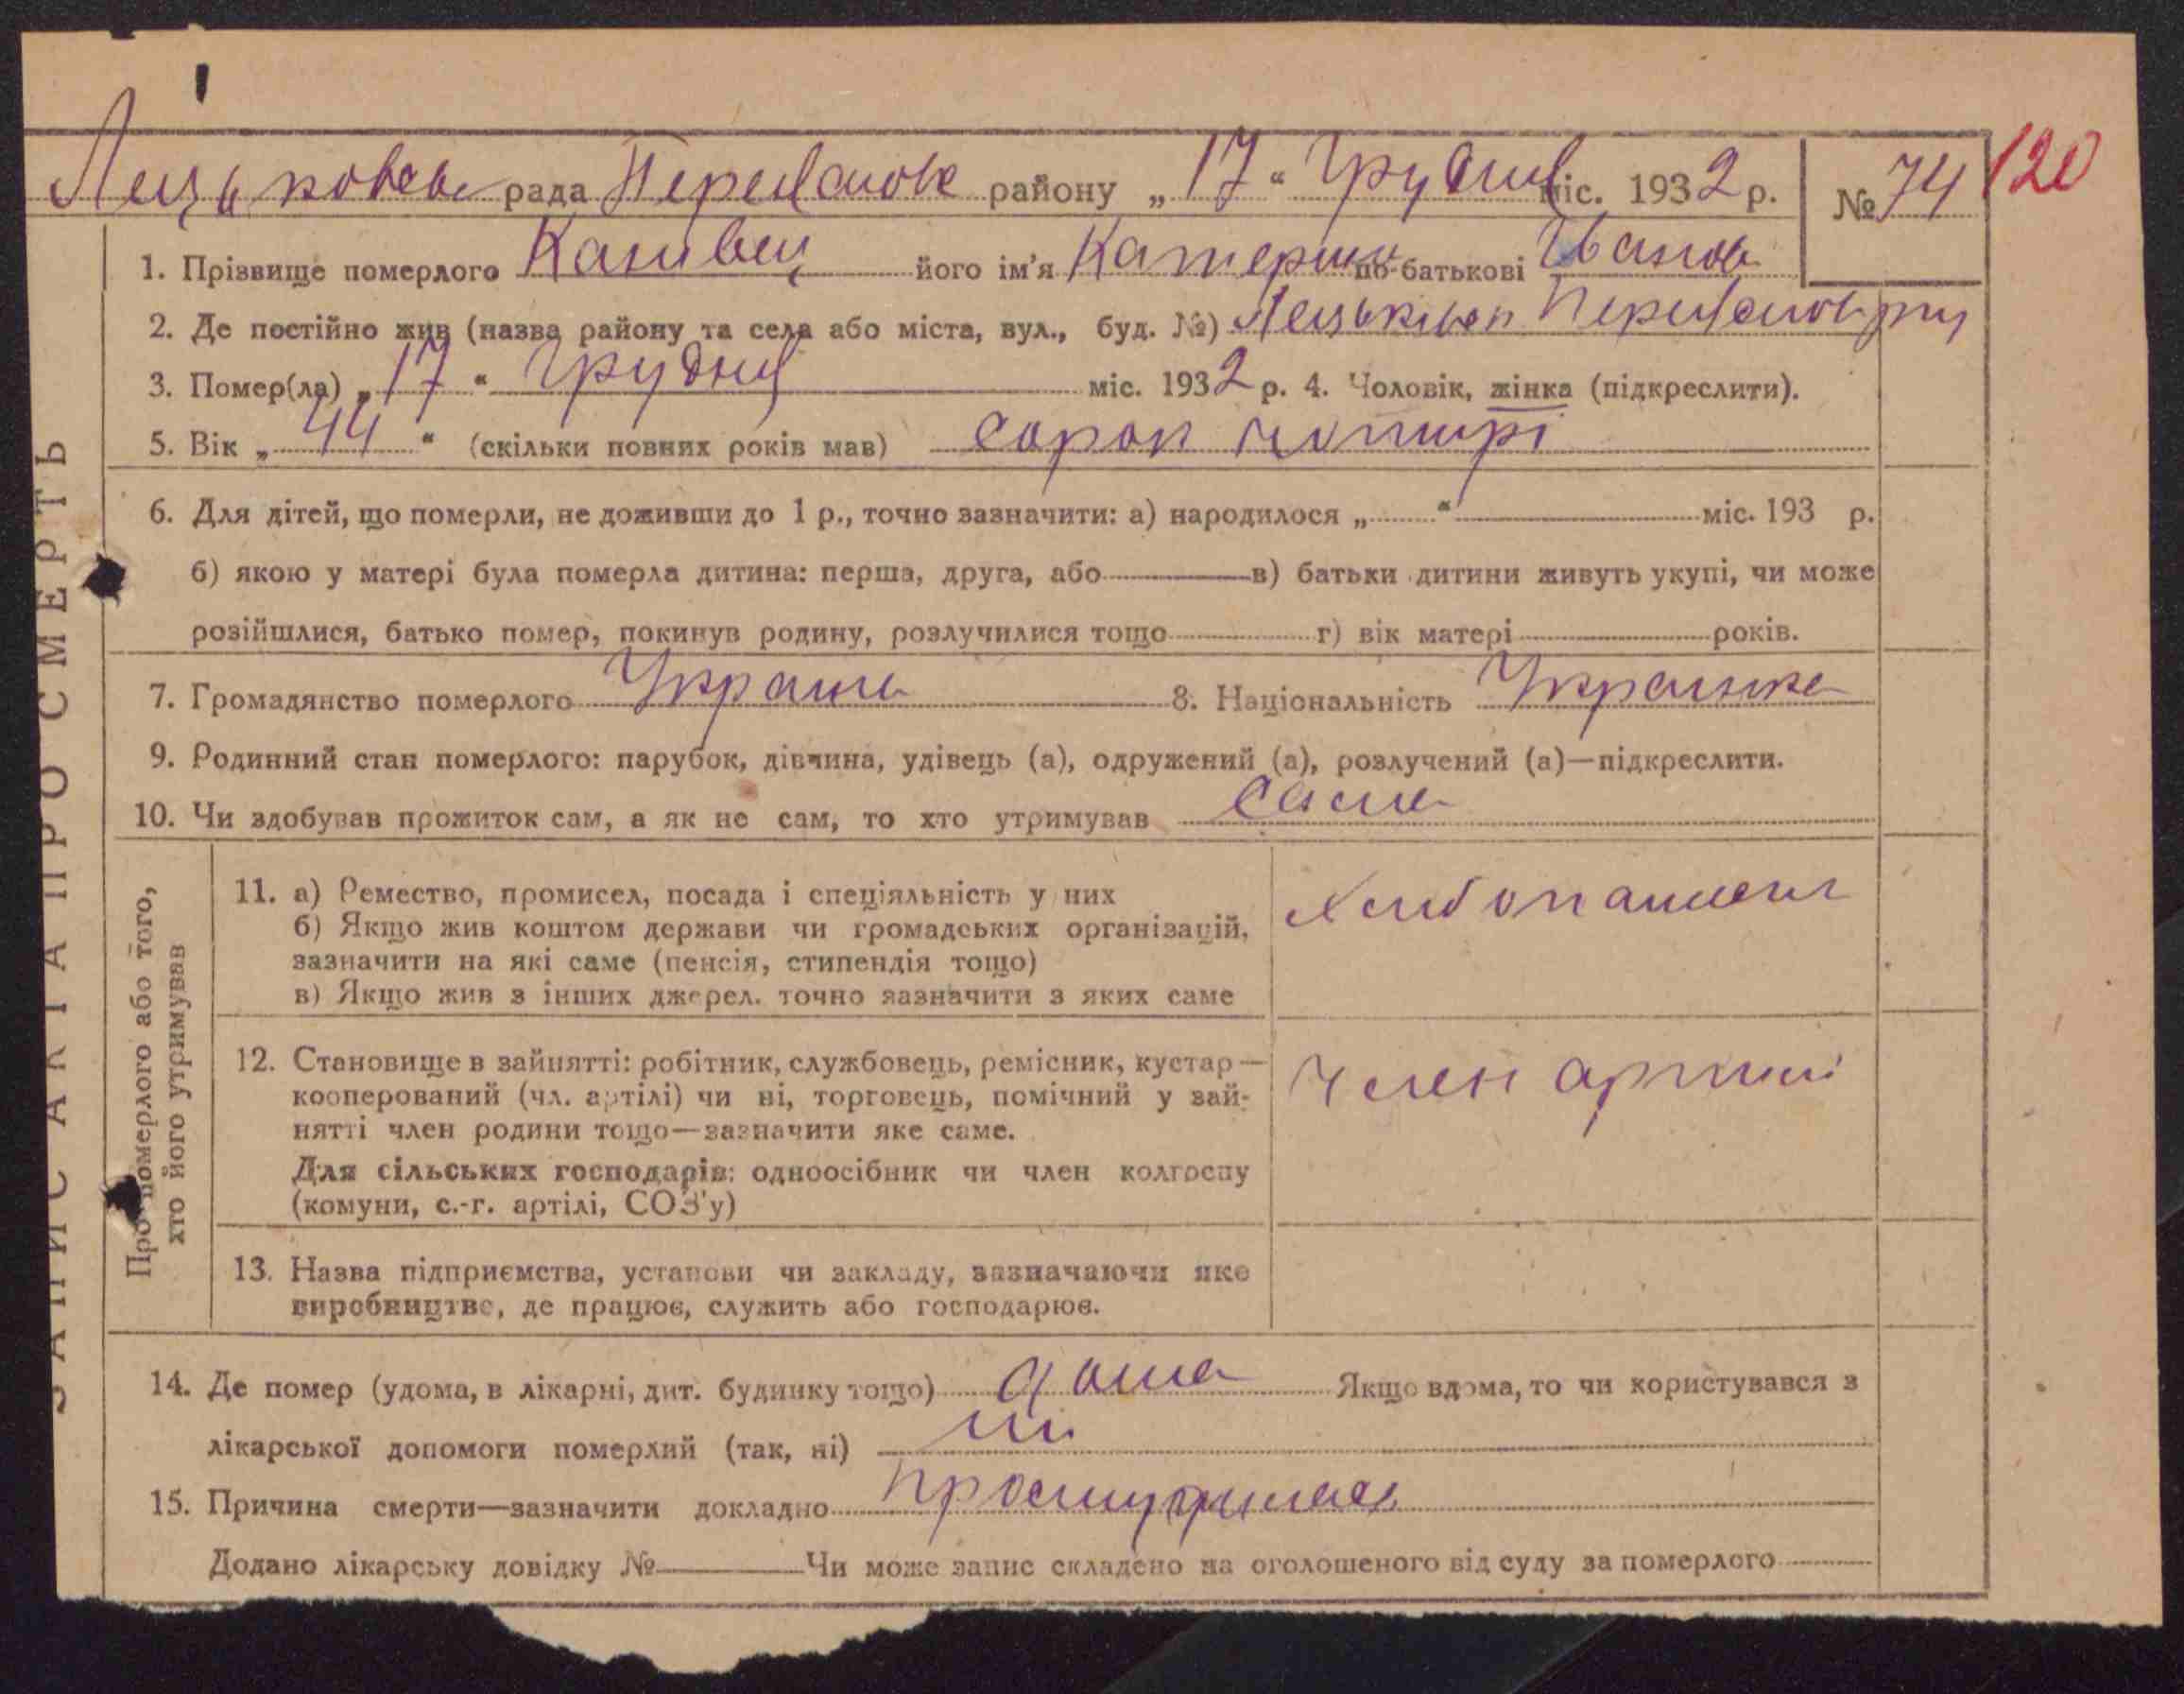 рада Переяслов району „17“ Грудня міс. 1932 р. № 74 120
1. Прізвище померлого Канивец його ім’я Катерина по-батькові Иванов
2. Де постійно жив (назва району та села або міста, вул., буд. №)
3. Помер(ла) „17“ Грудня міс. 1932 р. 4. Чоловік, жінка (підкреслити).
5. Вік „44“ (скільки повних років мав) сорок чотирі
6. Для дітей, що померли, не доживши до 1 р., точно зазначити: а) народилося „ “ міс. 193 р.
б) якою у матері була померла дитина: перша, друга, або в) батьки дитини живуть укупі, чи може
розійшлися, батько помер, покинув родину, розлучилися тощо г) вік матері років.
7. Громадянство померлого Украіни 8. Національність Украинка
9. Родинний стан померлого: парубок, дівчина, удівець (а), одружений (а), розлучений (а)—підкреслити.
10. Чи здобував прожиток сам, а як не сам, то хто утримував сама
ЗАПИС АКТА ПРО СМЕРТЬ
Про померлого або того,
хто його утримував
11. а) Ремество, промисел, посада і спеціяльність у них
б) Якщо жив коштом держави чи громадських організацій,
зазначити на які саме (пенсія, стипендія тощо)
в) Якщо жив з інших джерел. точно зазначити з яких саме
12. Становище в зайнятті: робітник, службовець, ремісник, кустар—
кооперований (чл. артілі) чи ні, торговець, помічний у зай-
нятті член родини тощо—зазначити яке саме.
Для сільських господарів: одноосібник чи член колгоспу
(комуни, с.-г. артілі, СОЗ'у)
Член артилі
13. Назва підприємства, установи чи закладу, зазначаючи яке
виробництво, де працює, служить або господарює.
14. Де помер (удома, в лікарні, дит. будинку тощо) дома Якщо вдома, то чи користувався з
лікарської допомоги померлий (так, ні) ні
15. Причина смерти—зазначити докладно
Додано лікарську довідку № Чи може запис складено на оголошеного від суду за померлого